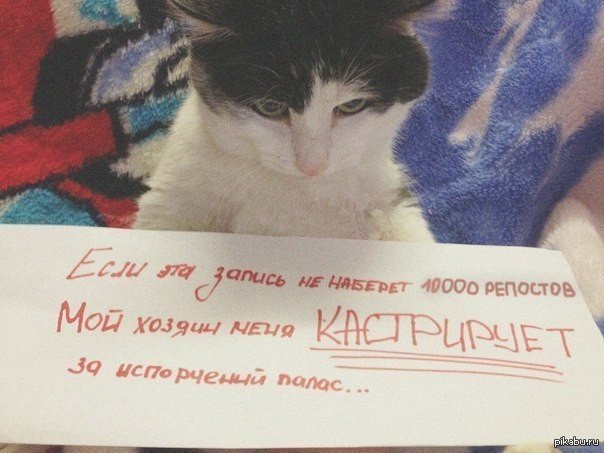 Если эта запись не наберет 10000 репостов
Мой хозяин меня КАСТРИРУЕТ
за испорченый палас...
pikabu.ru